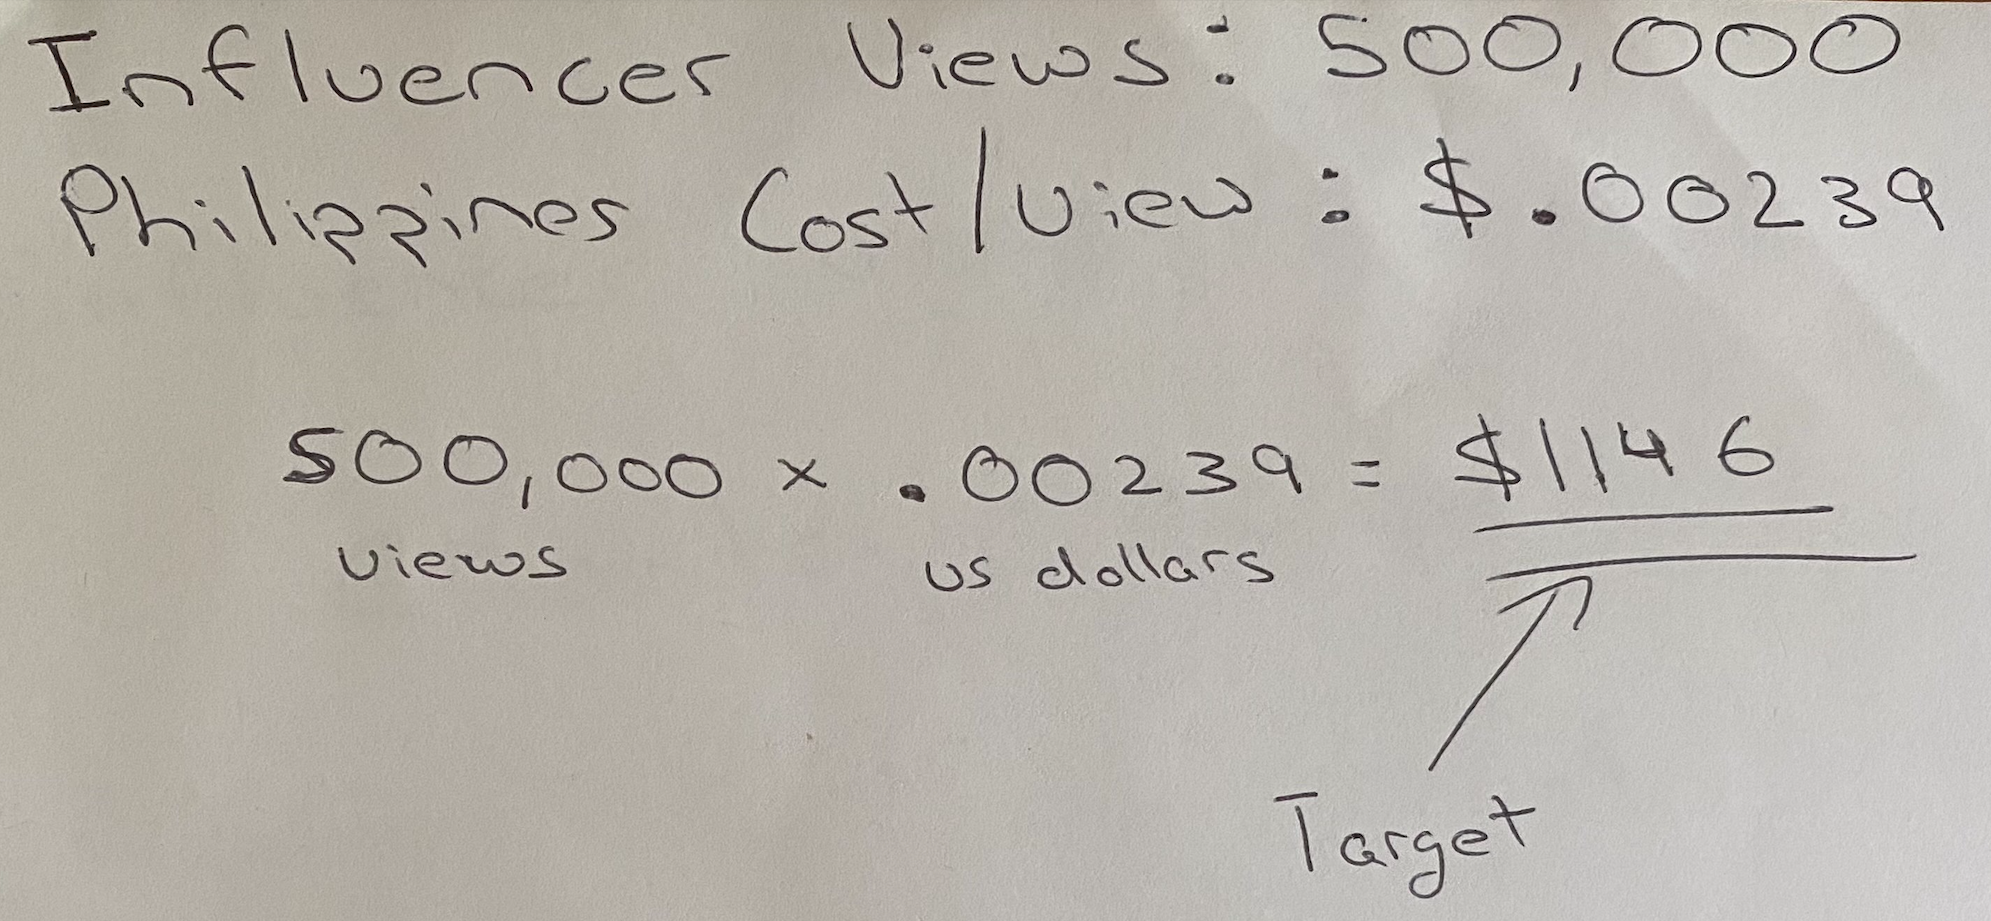 Influencer Views: 500,000
Philippines Cost/view: $.00239
500,000 x .00239 = $1146
views us dollars
Target